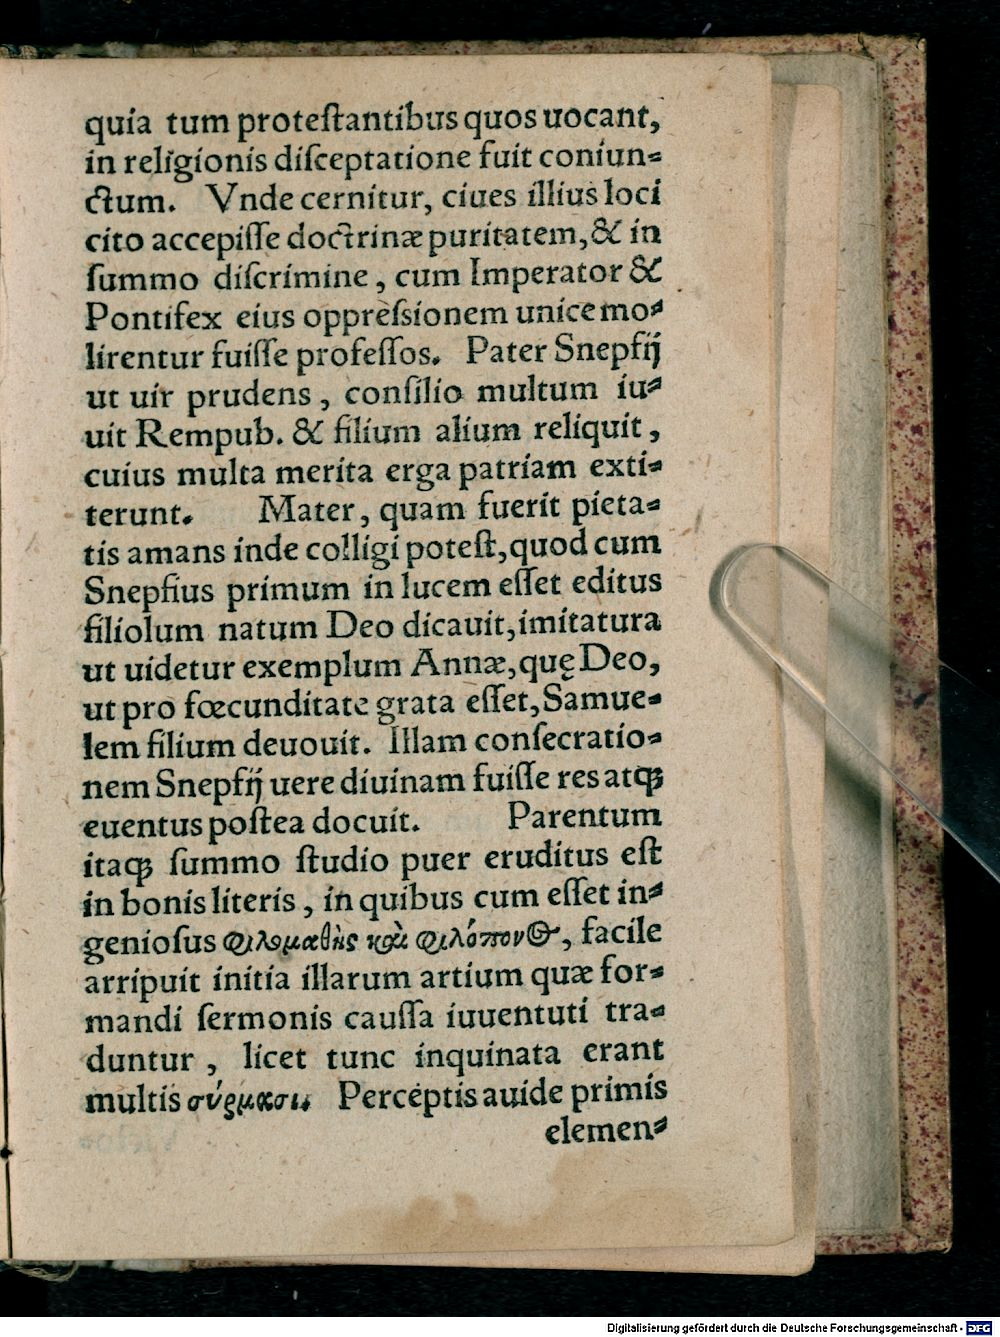 quia tum proteſtantibus quos uocant,
in religionis diſceptatione fuit coniun-
ctum. Vnde cernitur, ciues illius loci
cito accepiſſe doctrinæ puritatem, & in
ſummo diſcrimine, cum Imperator &
Pontifex eius oppreſsionem unice mo-
lirentur fuiſſe profeſſos. Pater Snepfij
ut uir prudens, conſilio multum iu-
uit Rempub. & filium alium reliquit,
cuius multa merita erga patriam exti-
terunt. Mater, quam fuerit pieta-
tis amans inde colligi poteſt, quod cum
Snepfius primum in lucem eſſet editus
filiolum natum Deo dicauit, imitatura
ut uidetur exemplum Annæ, quę Deo,
ut pro fœcunditate grata eſſet, Samue-
lem filium deuouit. Illam conſecratio-
nem Snepfij uere diuinam fuiſſe res atqꝫ
euentus poſtea docuit. Parentum
itaqꝫ ſummo ſtudio puer eruditus eſt
in bonis literis, in quibus cum eſſet in-
genioſus φιλομαθὴς καὶ φιλόπονος, facile
arripuit initia illarum artium quæ for-
mandi ſermonis cauſſa iuuentuti tra-
duntur, licet tunc inquinata erant
multis σύρμασι. Perceptis auide primis
elemen-
Digitalisierung gefördert durch die Deutsche Forschungsgemeinschaft - DFG